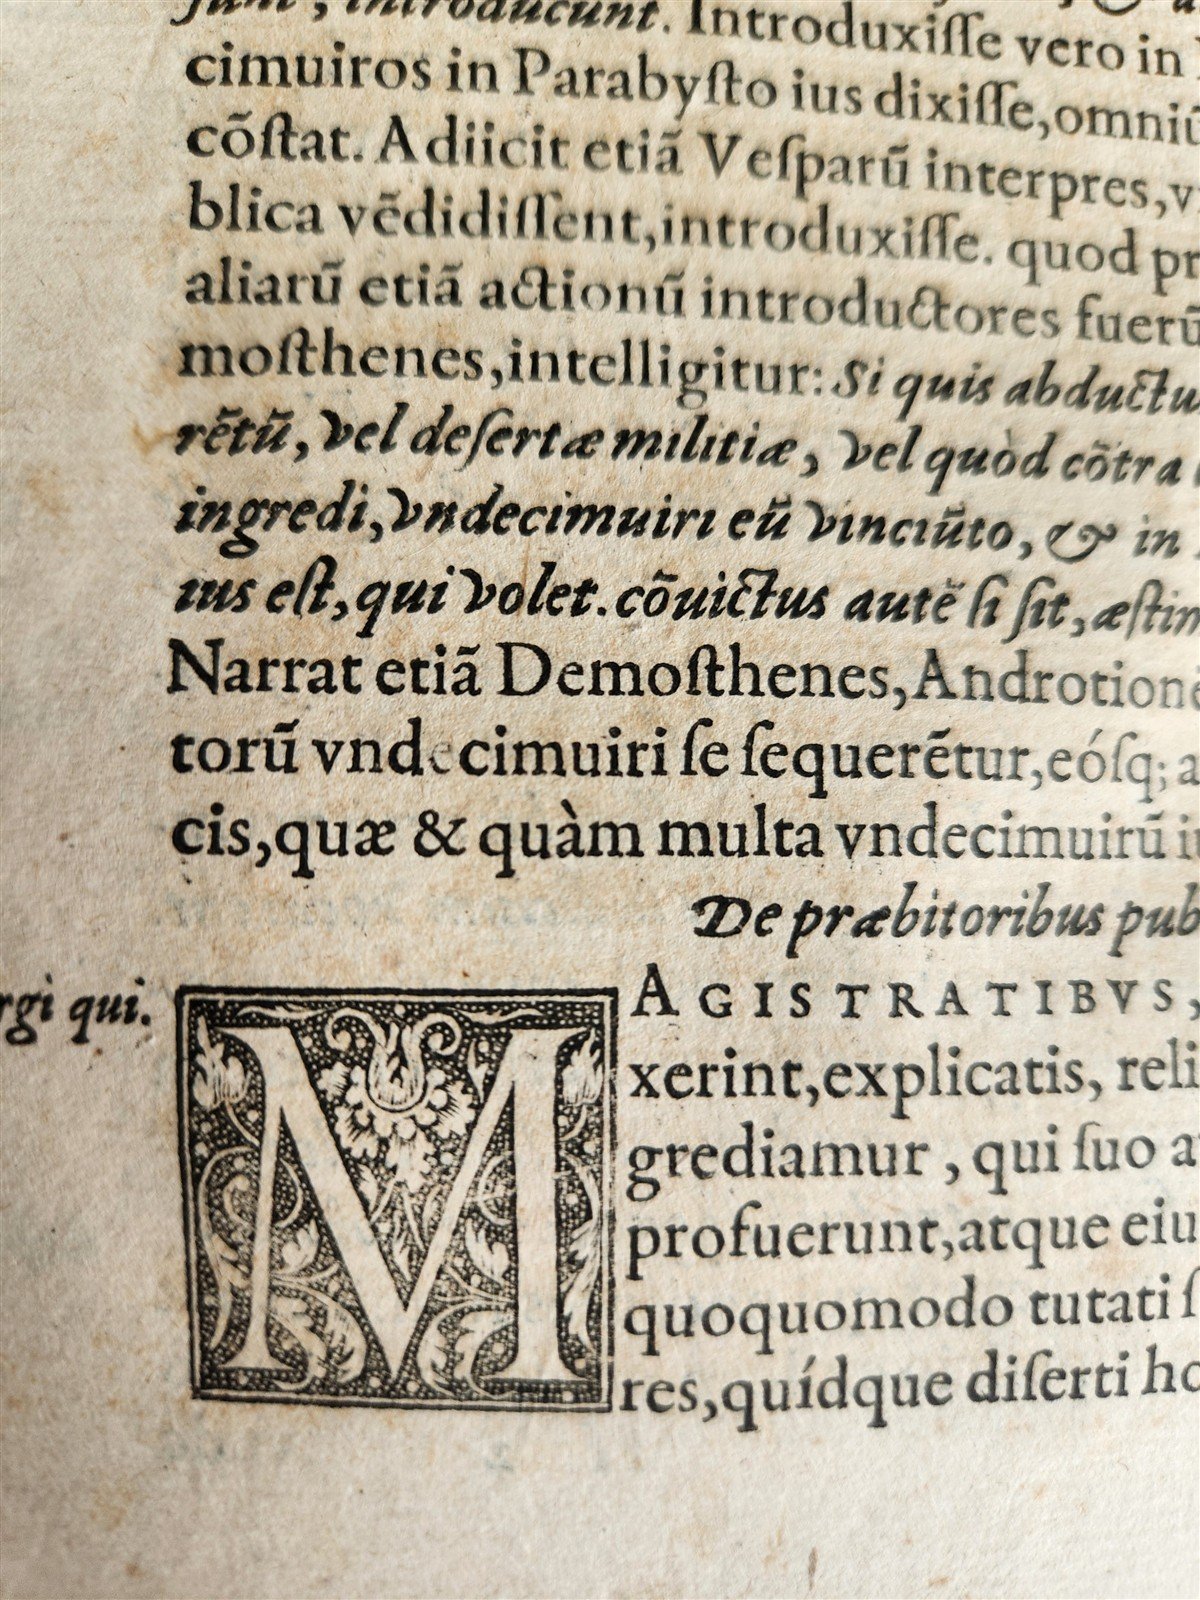 ſunt, introducunt. Introduxiſſe vero in
cimuiros in Parabyſto ius dixiſſe, omniũ
cõſtat. Adiicit etiã Veſparũ interpres, v
blica vẽdidiſſent, introduxiſſe. quod pr
aliarũ etiã actionũ introductores fuerũ
moſthenes, intelligitur: Si quis abductu
rẽtũ, vel deſertæ militiæ, vel quòd cõtra
ingredi, vndecimuiri eũ vinciũto, & in
ius eſt, qui volet. cõuictus autẽ ſi ſit, æſtim
Narrat etiã Demoſthenes, Androtione
torũ vndecimuiri ſe ſequerẽtur, eóſq; a
cis, quæ & quàm multa vndecimuirũ iu
De præbitoribus pub
rgi qui.
MAGISTRATIBVS,
xerint, explicatis, reli
grediamur, qui ſuo a
profuerunt, atque eiu
quoquomodo tutati ſ
res, quídque diſerti ho